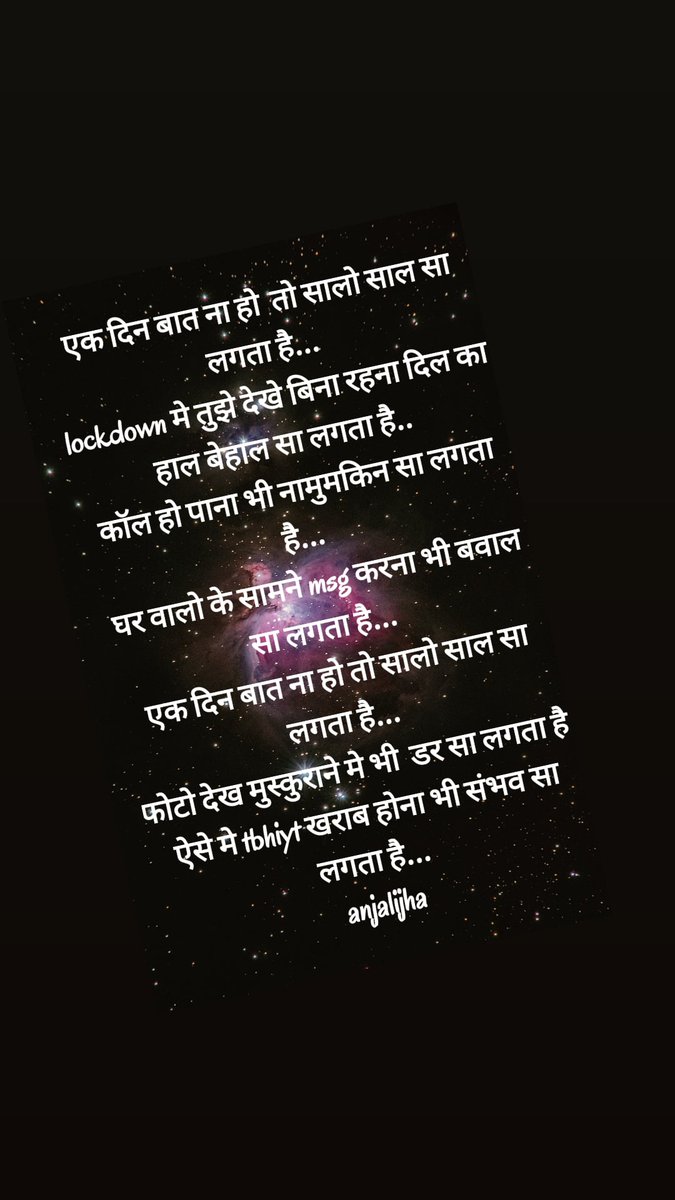 एक दिन बात ना हो तो सालो साल सा
लगता है...
lockdown मे तुझे देखे बिना रहना दिल का
हाल बेहाल सा लगता है..
कॉल हो पाना भी नामुमकिन सा लगता
है...
घर वालो के सामने msg करना भी बवाल
सा लगता है...
एक दिन बात ना हो तो सालो साल सा
लगता है...
फोटो देख मुस्कुराने मे भी डर सा लगता है
ऐसे मे tbhiyt खराब होना भी संभव सा
लगता है...
anjalijha